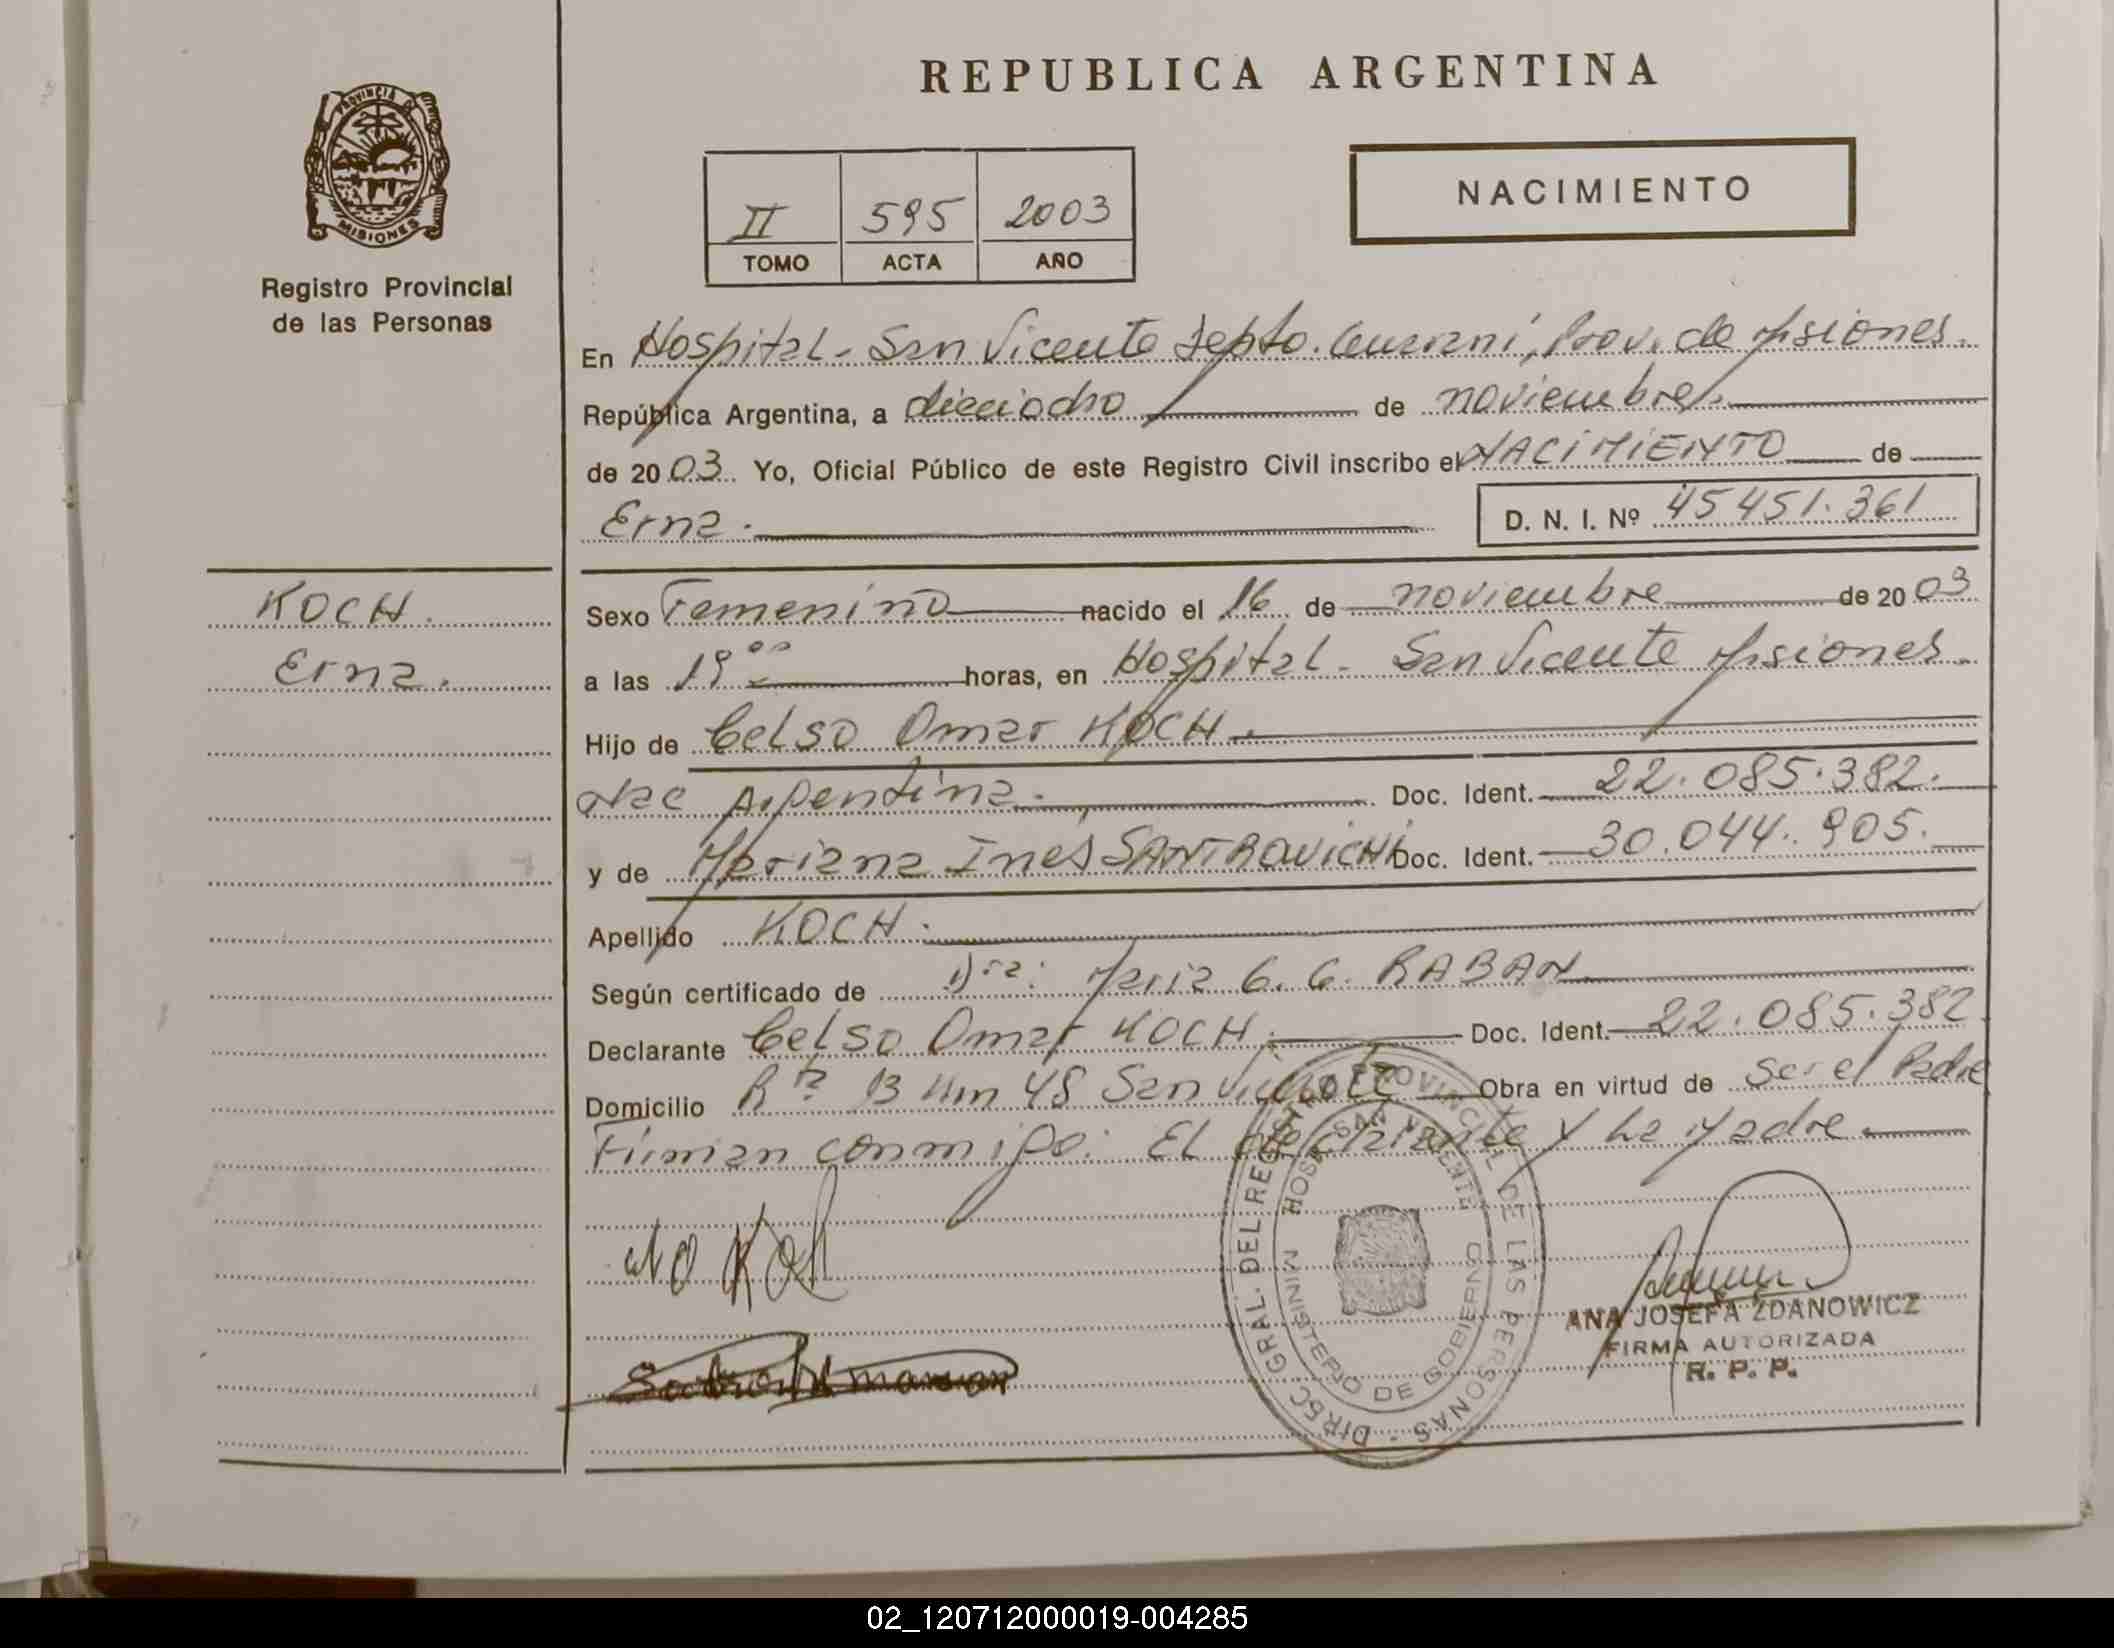 REPUBLICA ARGENTINA
PROVINCIA DE
MISIONES
Registro Provincial
de las Personas
II 595 2003
TOMO ACTA AÑO
NACIMIENTO
En Hospital - San Vicente Depto. Guarani, Prov. de Misiones.
República Argentina, a dieciocho de noviembre.
de 2003. Yo, Oficial Público de este Registro Civil inscribo el NACIMIENTO de
Erna. D. N. I. Nº 45451.361
KOCH.
Erna.
Sexo Femenino nacido el 16 de noviembre de 2003
a las 19 00 horas, en Hospital - San Vicente Misiones.
Hijo de Celso Omar KOCH.
Nac Argentina. Doc. Ident. 22.085.382.
y de Mariana Inés Doc. Ident. 30.044.905.
Apellido KOCH.
Según certificado de Dra: Maria G. G. RABAN
Declarante Celso Omar KOCH. Doc. Ident. 22.085.382
Domicilio R 13 Km 48 San Vicente Obra en virtud de Ser el Padre
Firman conmigo: El declarante y La Madre.
DIREC GRAL. DEL REGISTRO PROVINCIAL DE LAS PERSONAS -
HOSP. SAN VICENTE
MINISTERIO DE GOBIERNO
ANA JOSEFA ZDANOWICZ
FIRMA AUTORIZADA
R. P. P.
02_120712000019-004285